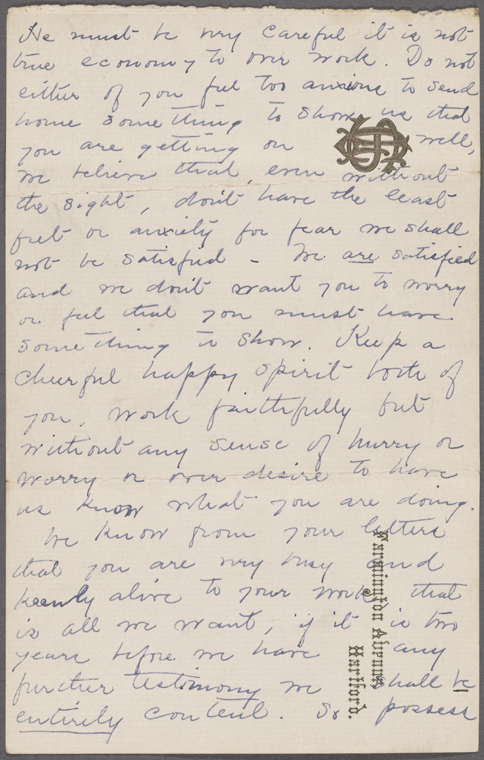 He must be very careful it is not
true economy to over work. Do not
either of you feel too anxious to send
home something to show us that
you are getting on well,
we believe that, even without
the sight, don't have the least
fret or anxiety for fear we shall
not be satisfied - We are satisfied
and we don't want you to worry
or feel that you must have
something to show. Keep a
cheerful happy spirit both of
you, work faithfully but
without any sense of hurry or
worry or over desire to have
us know what you are doing.
We know from your letters
that you are very busy and
keenly alive to your work, that
is all we want, if it is two
years before we have any
further testimony we shall be
entirely content. So possess
Farmington Avenue
Hartford.